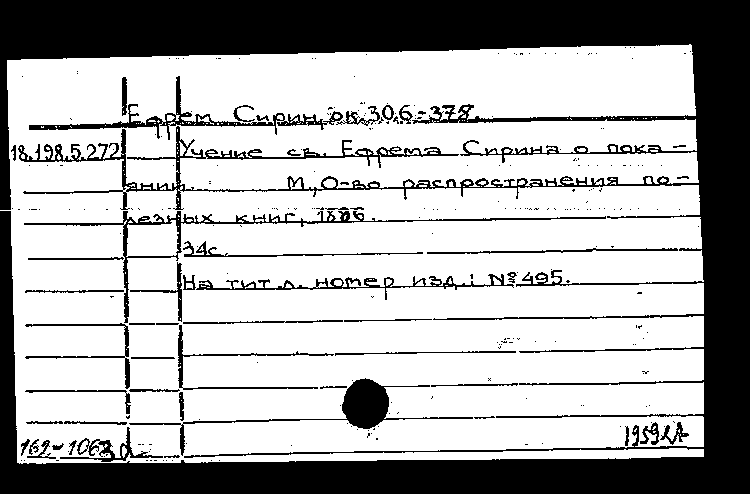 Ефрем Сирин, ок. 306-378.
18.198.5.272 Учение св. Ефрема Сирина о пока-
янии. М., О-во распространения по-
лезных книг, 1886.
34с.
На тит. л. номер изд.: №495.
162-1063